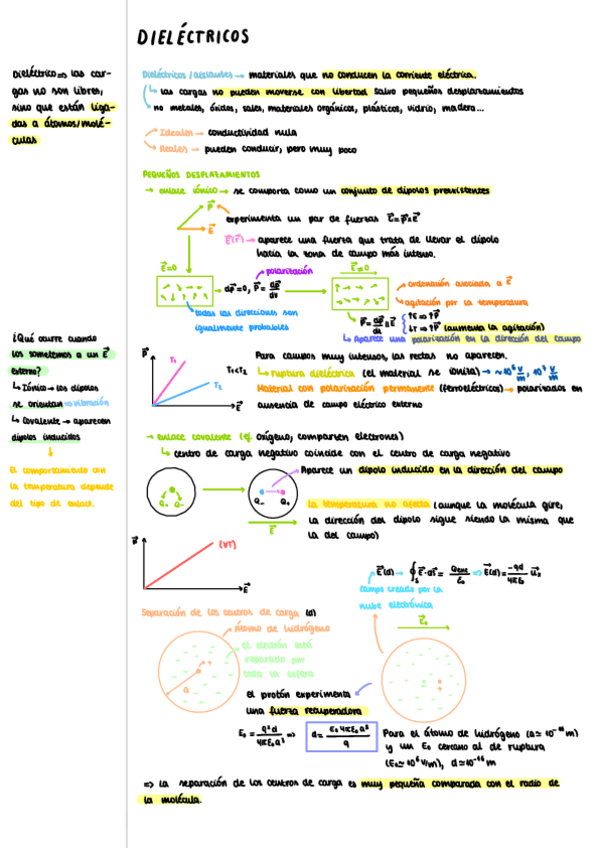 DIELÉCTRICOS
Dieléctrico => las car-
gas no son libres,
sino que están liga-
das a átomos/molé-
culas
Dieléctricos / aislantes → materiales que no conducen la corriente eléctrica.
las cargas no pueden moverse con libertad salvo pequeños desplazamientos
no metales, óxidos, sales, materiales orgánicos, plásticos, vidrio, madera...
Ideales → conductividad nula
Reales → pueden conducir, pero muy poco
PEQUEÑOS DESPLAZAMIENTOS
→ enlace iónico → se comporta como un conjunto de dipolos preexistentes
experimenta un par de fuerzas
aparece una fuerza que trata de llevar el dipolo
hacia la zona de campo más intenso.
E=0
polarización
E≠0
todas las direcciones son
igualmente probables
ordenación asociada a E
agitación por la temperatura
↑E ⇒ ↑P
(aumenta la agitación)
Aparece una polarización en la dirección del campo
¿Qué ocurre cuando
los sometemos a un E
externo?
↳ Iónico → los dipolos
se orientan => vibración
↳ Covalente → aparecen
dipolos inducidos
El comportamiento con
la temperatura depende
del tipo de enlace.
P
T₁
T₂
T₁<T₂
E
Para campos muy intensos, las rectas no aparecen.
↳ ruptura dieléctrica (el material se ioniza)
Material con polarización permanente (ferroeléctricos) → polarizados en
ausencia de campo eléctrico externo
→ enlace covalente (ej. oxígeno, comparten electrones)
↳ centro de carga negativo coincide con el centro de carga negativo
Aparece un dipolo inducido en la dirección del campo
Q₊ Q₋
Q₋ Q₊
E
La temperatura no afecta (aunque la molécula gire,
la dirección del dipolo sigue siendo la misma que
la del campo)
P
(∀T)
E
campo creado por la
nube electrónica
Separación de los centros de carga (d)
átomo de hidrógeno
el electrón está
repartido por
toda la esfera
a
E₀
el protón experimenta
una fuerza recuperadora
E₀ = q²d / 4πε₀a³ => d = E₀4πε₀a³ / q
Para el átomo de hidrógeno (a≃10⁻¹⁰ m)
y un E₀ cercano al de ruptura
(E₀≃10⁶ V/m), d≃10⁻¹⁶ m
=> la separación de los centros de carga es muy pequeña comparada con el radio de
la molécula.